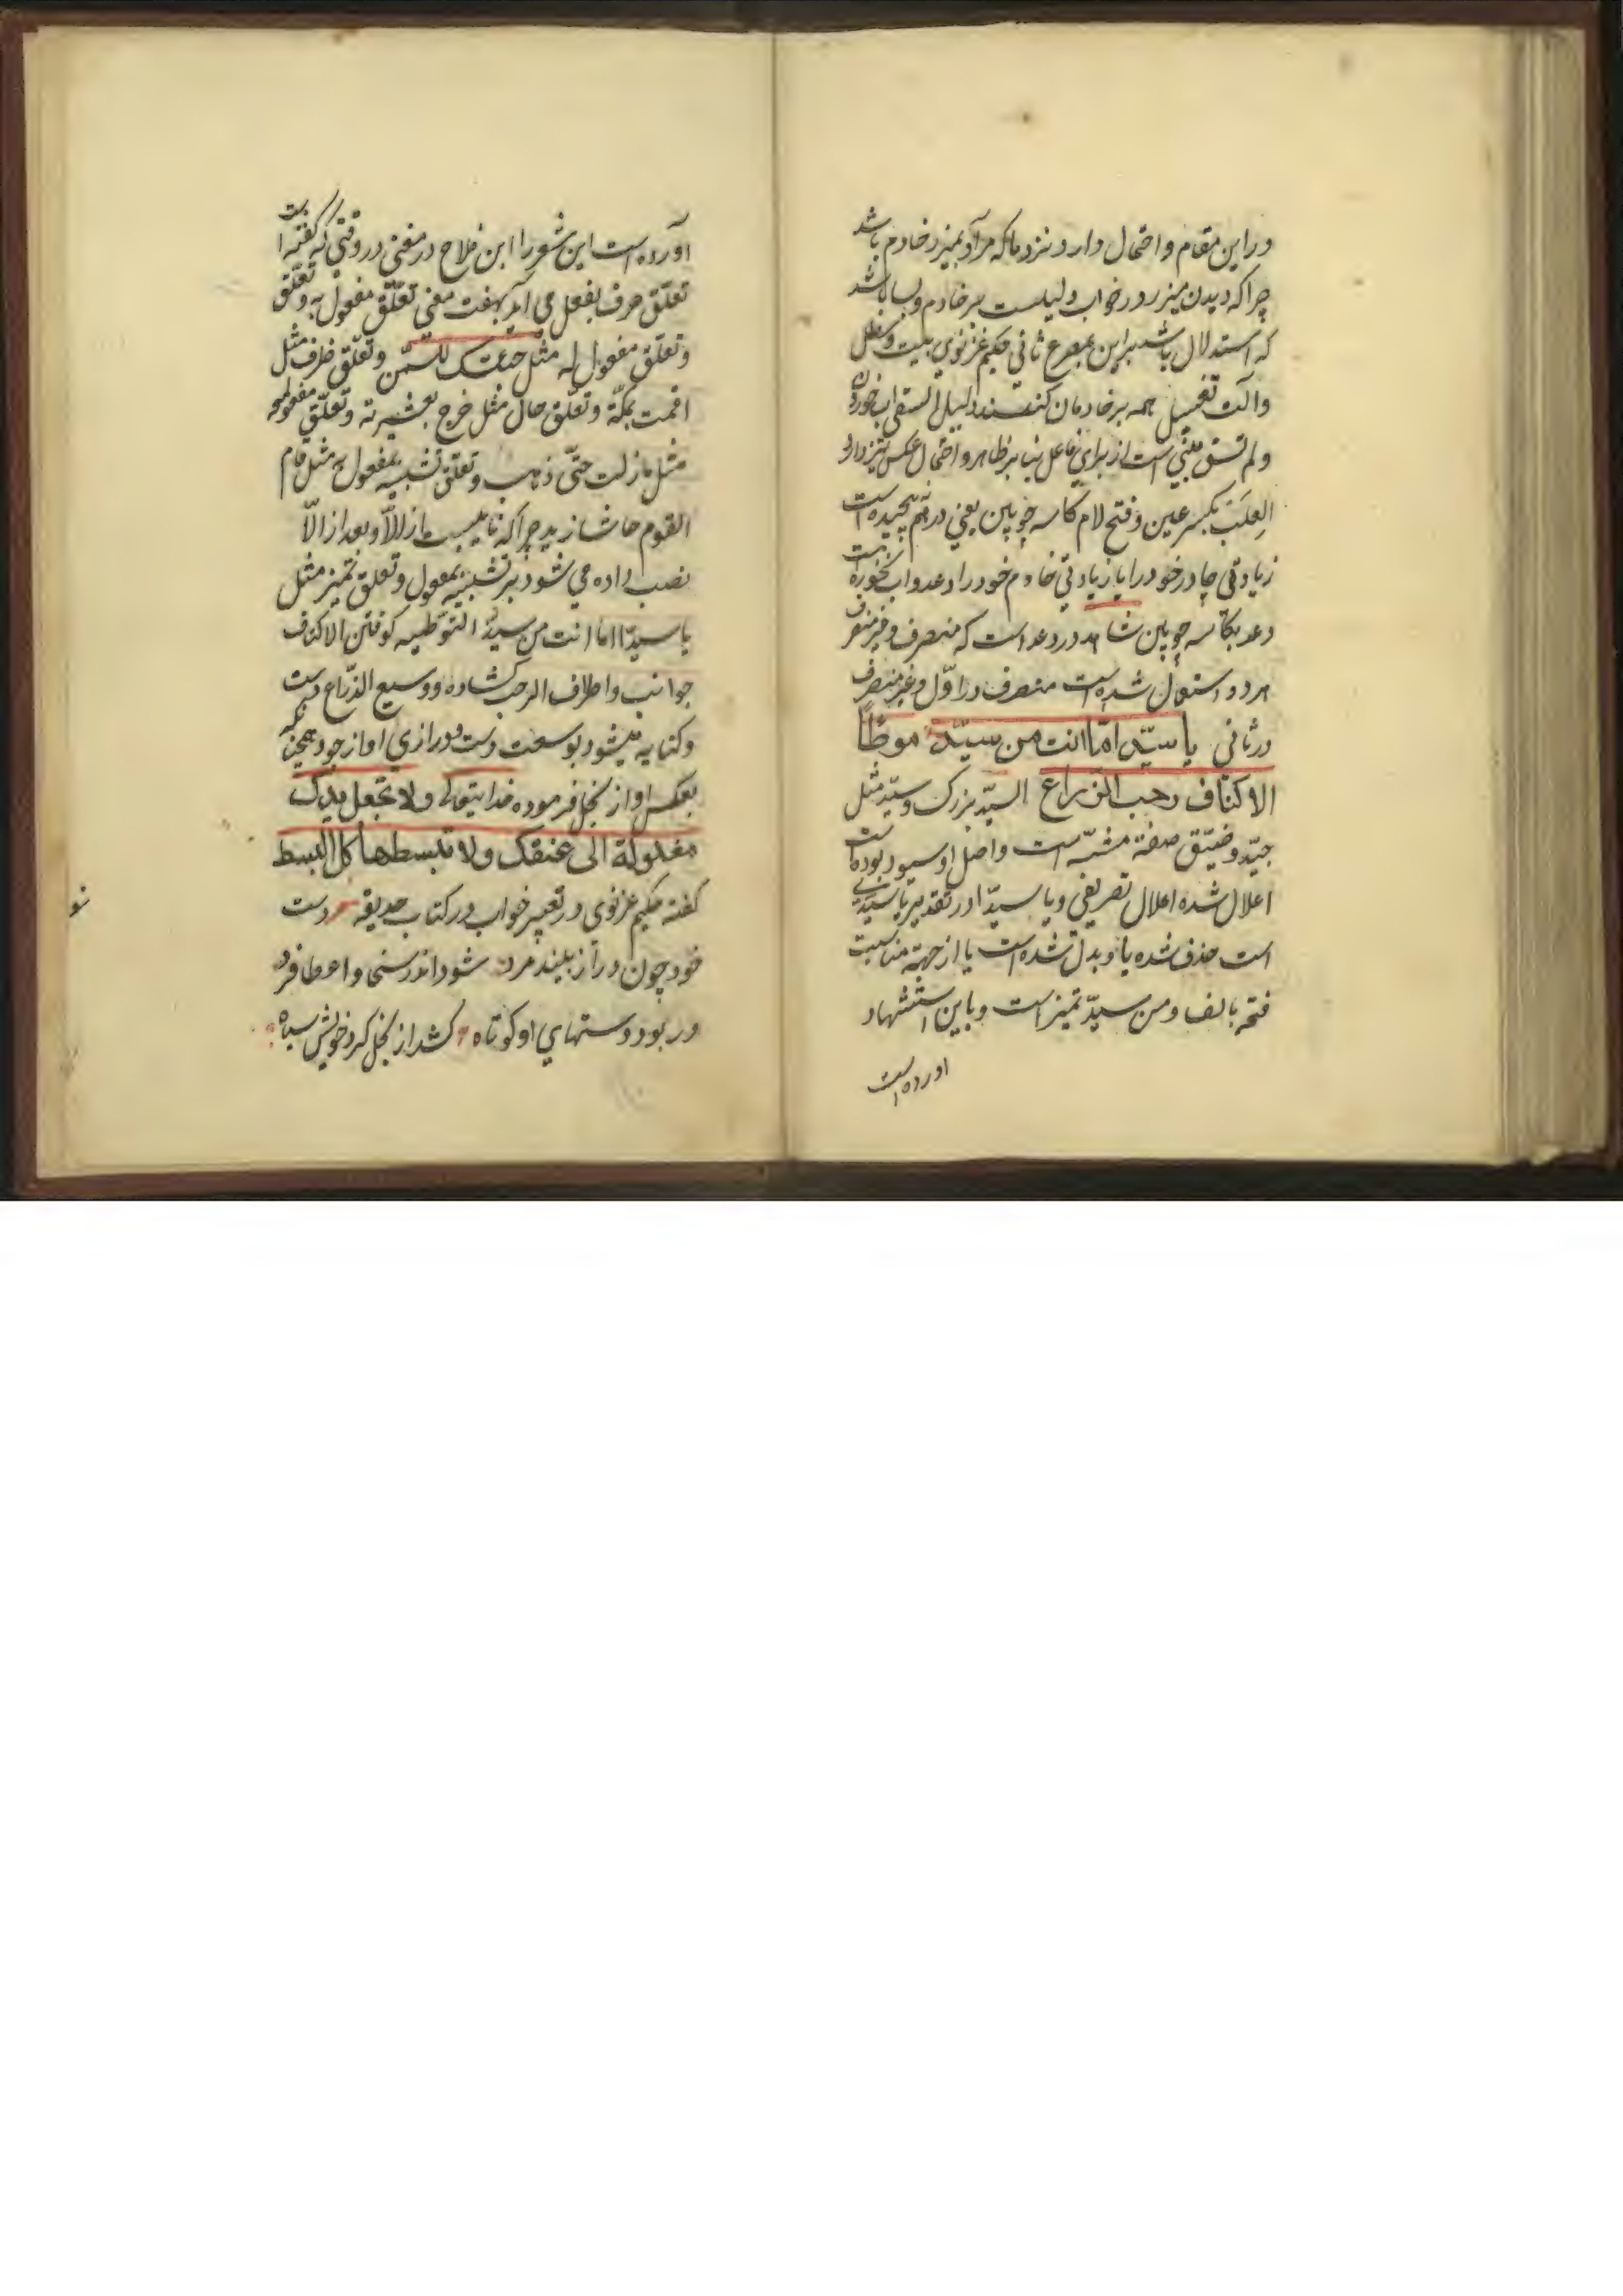 در این مقام و احتمال دارد نزد ما که مراد بمیزر خادم باشد
چرا که دیدن میزر در خواب دلیلست بر خادم و بسا باشد
که استدلال باشد بر این بمصرع ثانی حکیم غزنوی بیت و سطل
و آلت تغسیل همه بر خادمان کنند دلیل السقی آب خوردن
و لم تسق مبنی است از برای فاعل بنا بر ظاهر و احتمال عکس نیز دارد
العِلَب بکسر عین و فتح لام کاسه چوبین یعنی در هم پیچیده است
زیادتی چادر خود را یا زیادتی خادم خود را دعد و آب نخورده است
دعد بکاسه چوبین شاهد در دعد است که منصرف و غیر منصرف
هر دو استعمال شده است منصرف در اوّل و غیر منصرف
در ثانی یا سیّدا امّا انت من سیّد موطّأ
الاکناف رحب الذراع السیّد بزرک و سیّد مثل
جیّد و ضیّق صفة مشبّه است و اصل او سیود بوده است
اعلال شده اعلال تصریفی و یا سیّدا در تقدیر یا سیّدی
است حذف شده یا و بدل شده است یا از جهة مناسبت
فتحه بالف و من سیّد تمیز است و باین استشهاد
اورده است
آورده است این شعر را ابن فلاح در مغنی در وقتی که گفته است
تعلّق حرف بفعل می آید بهفت معنی تعلّق مفعول به و تعلّق
و تعلّق مفعول له مثل جئتک للسّمن و تعلّق ظرف مثل
اقمت بمکّة و تعلّق حال مثل خرج بعشیرته و تعلّق مفعول معه
مثل مازلت حتّی ذهب و تعلّق تشبیه بمفعول به مثل قام
القوم حاشا زید چرا که نایبست از الّا و بعد از الّا
نصب داده می شود بر تشبیه بمفعول و تعلق تمیز مثل
یا سیدّا اما انت من سیدّ التوّطیه کوفتن الاکناف
جوانب و اطراف الرحب کشاده و وسیع الذّراع دست
و کنایه میشود بوسعت دست و درازی او از جود همچنانکه
بعکس او از بخل فرموده خدایتعالی ولا تجعل یدک
مغلولة الی عنقک ولا تبسطها کل البسط
گفته حکیم غزنوی در تعبیر خواب در کتاب حدیقه دست
خود چون دراز بیند مرد شود اندر سخی و اعطا فرد
ور بود دستهای او کوتاه کشد از بخل کرد خویش سپاه